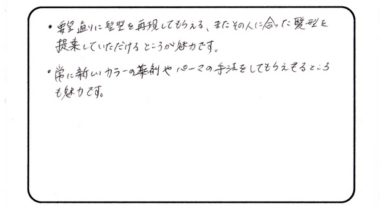 ・要望通りに髪型を再現してもらえる、またその人に合った髪型を
提案していただけるところが魅力です。
・常に新しいカラーの薬剤やパーマの手法をしてもらえるところ
も魅力です。